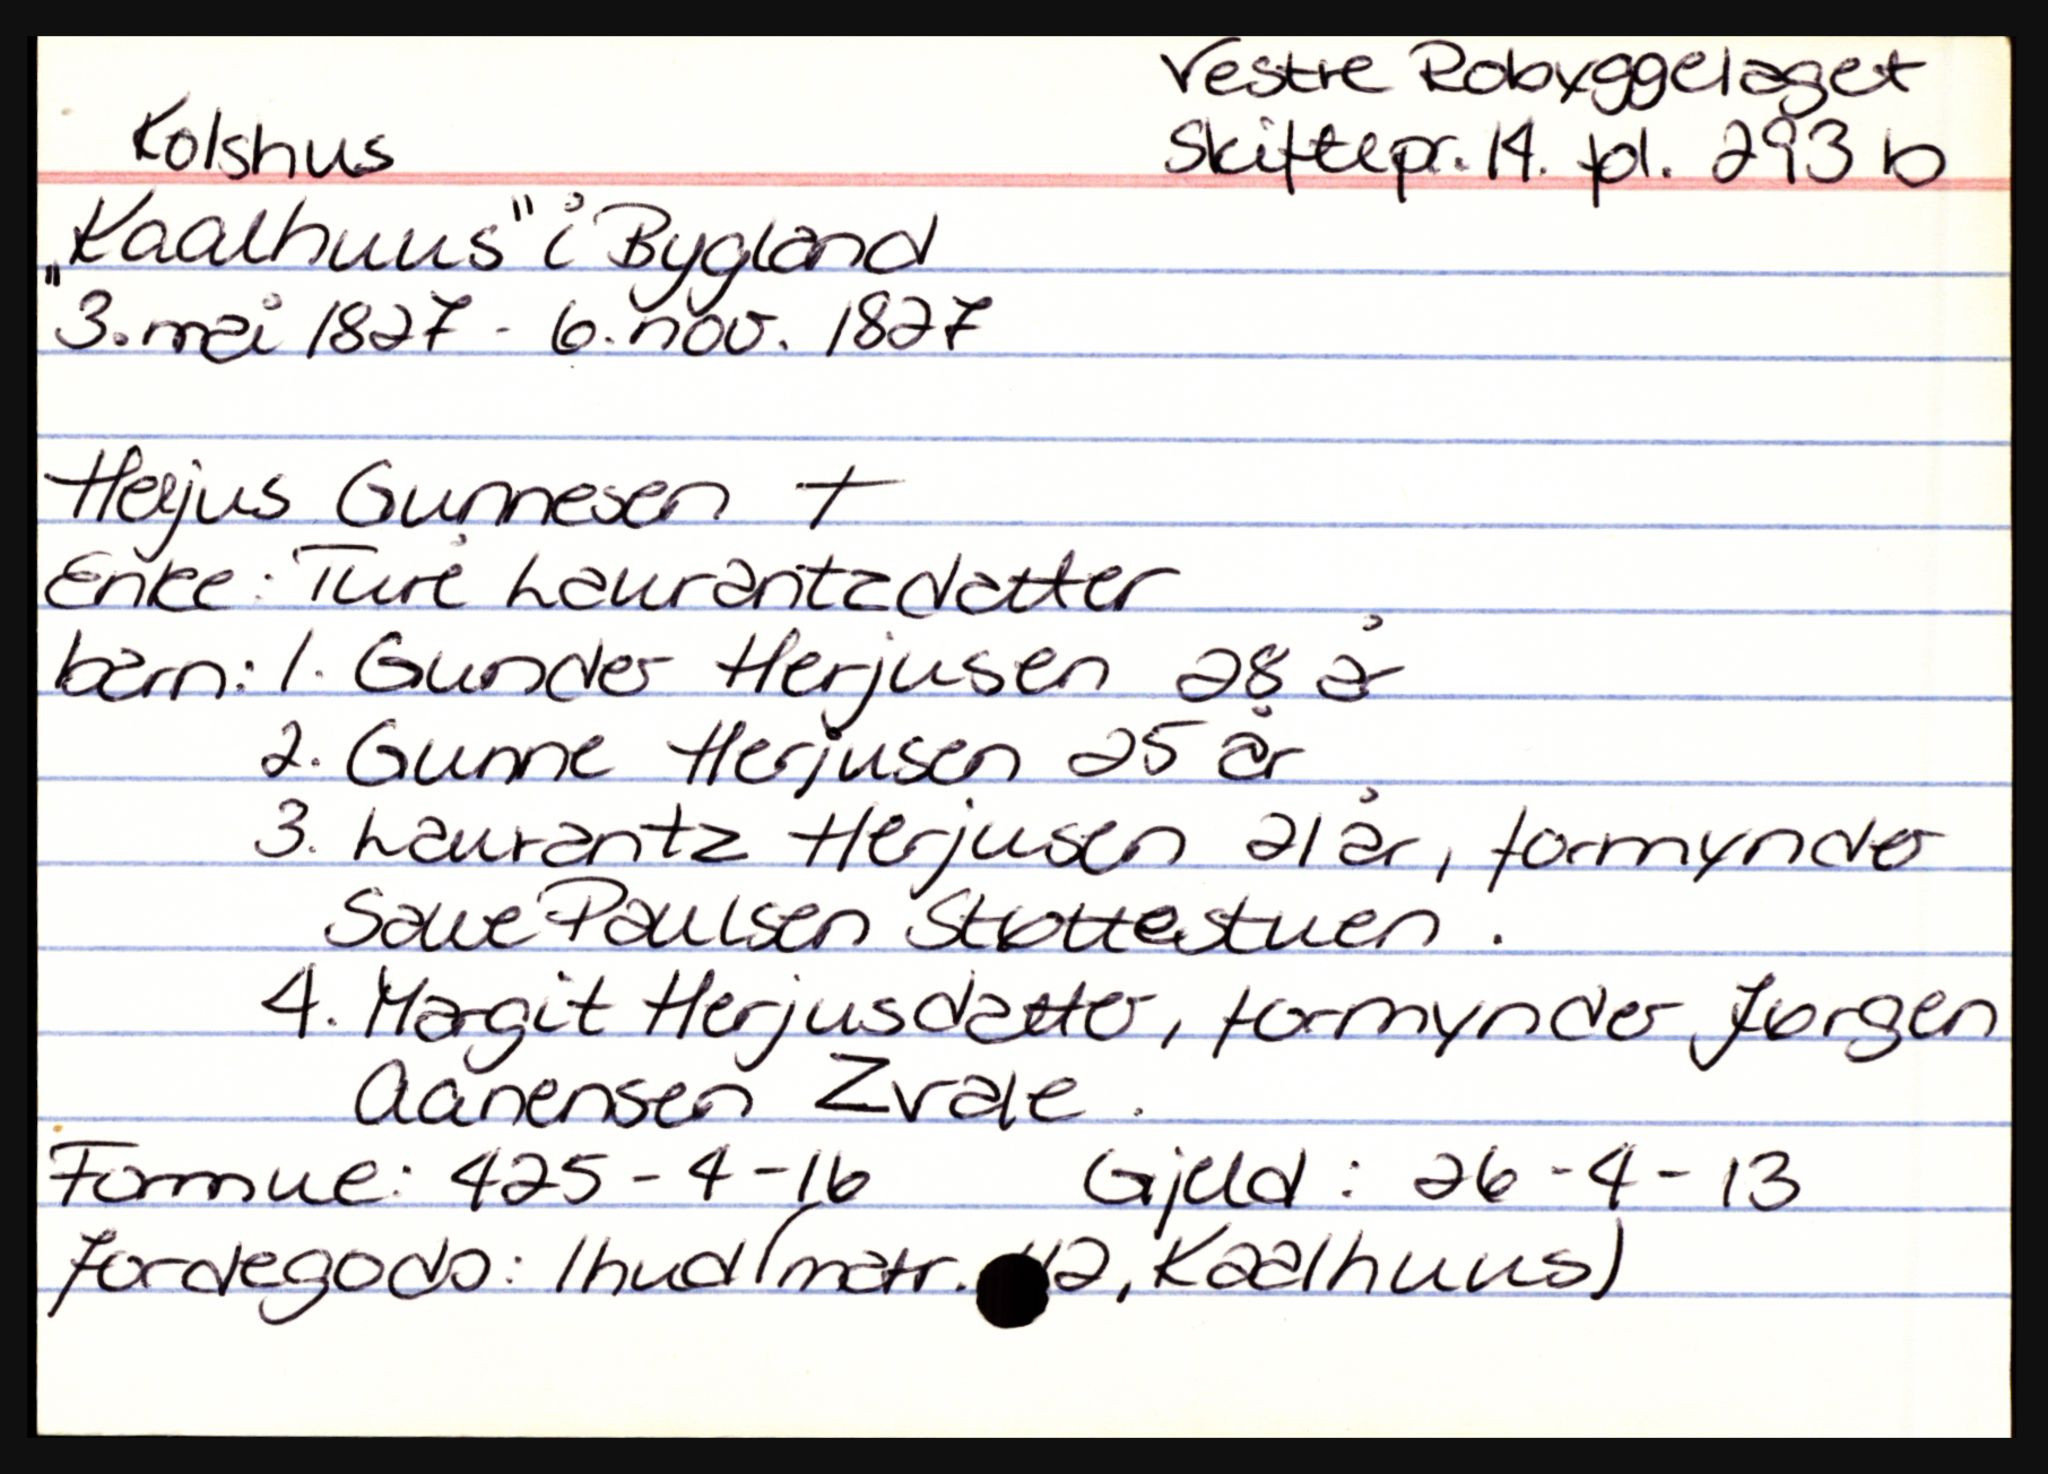 Vestre Robyggelaget
Kolshus Skiftepr. 14. fol. 293 b
"Kaalhuus" i Bygland
3. mai 1827 - 6. nov. 1827
Herjus Gunnesen +
Enke: Turi Laurantzdatter
barn: 1. Gunder Herjusen 28 år
2. Gunne Herjusen 25 år
3. Laurantz Herjusen 21 år, formynder
Salve Paulsen Støttestuen.
4. Margit Herjusdatter, formynder Jørgen
Aanensen Zvale.
Formue: 425-4-16 Gjeld: 26-4-13
Jordegods: 1 hud (matr. 12, Kaalhuus)